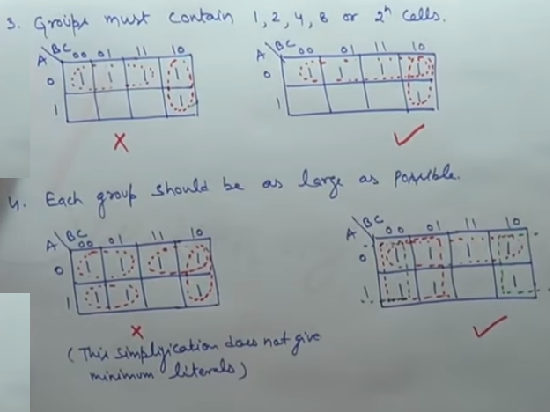 3. Groups must contain 1, 2, 4, 8 or 2ⁿ cells.
A BC 00 01 11 10
0 1 1 1 1
1 1
X
A BC 00 01 11 10
0 1 1 1 1
1 1
✓
4. Each group should be as large as possible.
A BC 00 01 11 10
0 1 1 1 1
1 1 1 1
X
(This simplification does not give
minimum literals)
A BC 00 01 11 10
0 1 1 1 1
1 1 1 1
✓